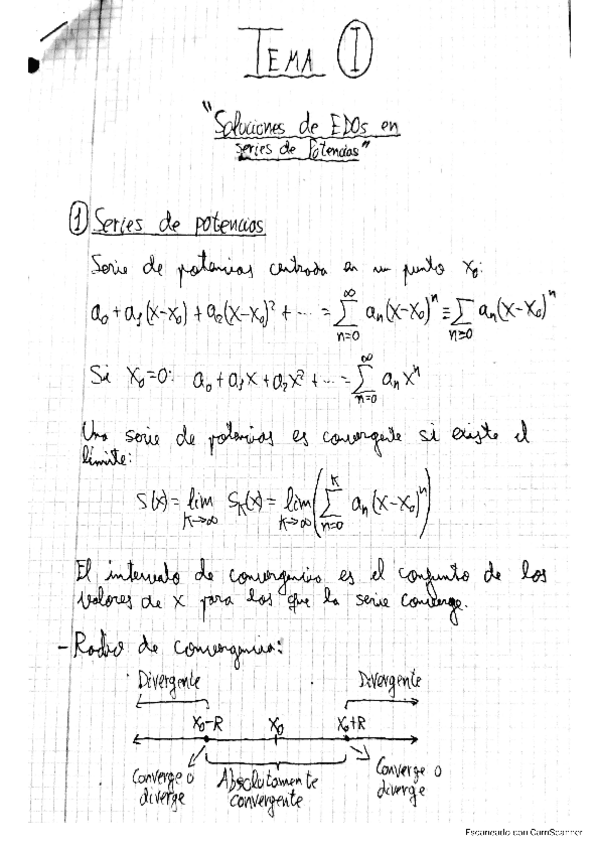 TEMA I
"Soluciones de EDOs en
series de Potencias"
1 Series de potencias
Serie de potencias centrada en un punto x₀:
a₀+a₁(x-x₀)+a₂(x-x₀)²+⋯=∑_{n=0}^{∞} aₙ(x-x₀)ⁿ≡∑_{n≥0} aₙ(x-x₀)ⁿ
Si x₀=0: a₀+a₁x+a₂x²+⋯=∑_{n=0}^{∞} aₙxⁿ
Una serie de potencias es convergente si existe el
límite:
S(x)=lim_{K→∞} S_K(x)=lim_{K→∞}(∑_{n=0}^{K} aₙ(x-x₀)ⁿ)
El intervalo de convergencia es el conjunto de los
valores de x para los que la serie converge.
- Radio de convergencia:
Divergente Divergente
x₀-R x₀ x₀+R
Converge o diverge
Absolutamente convergente
Converge o diverge
Escaneado con CamScanner